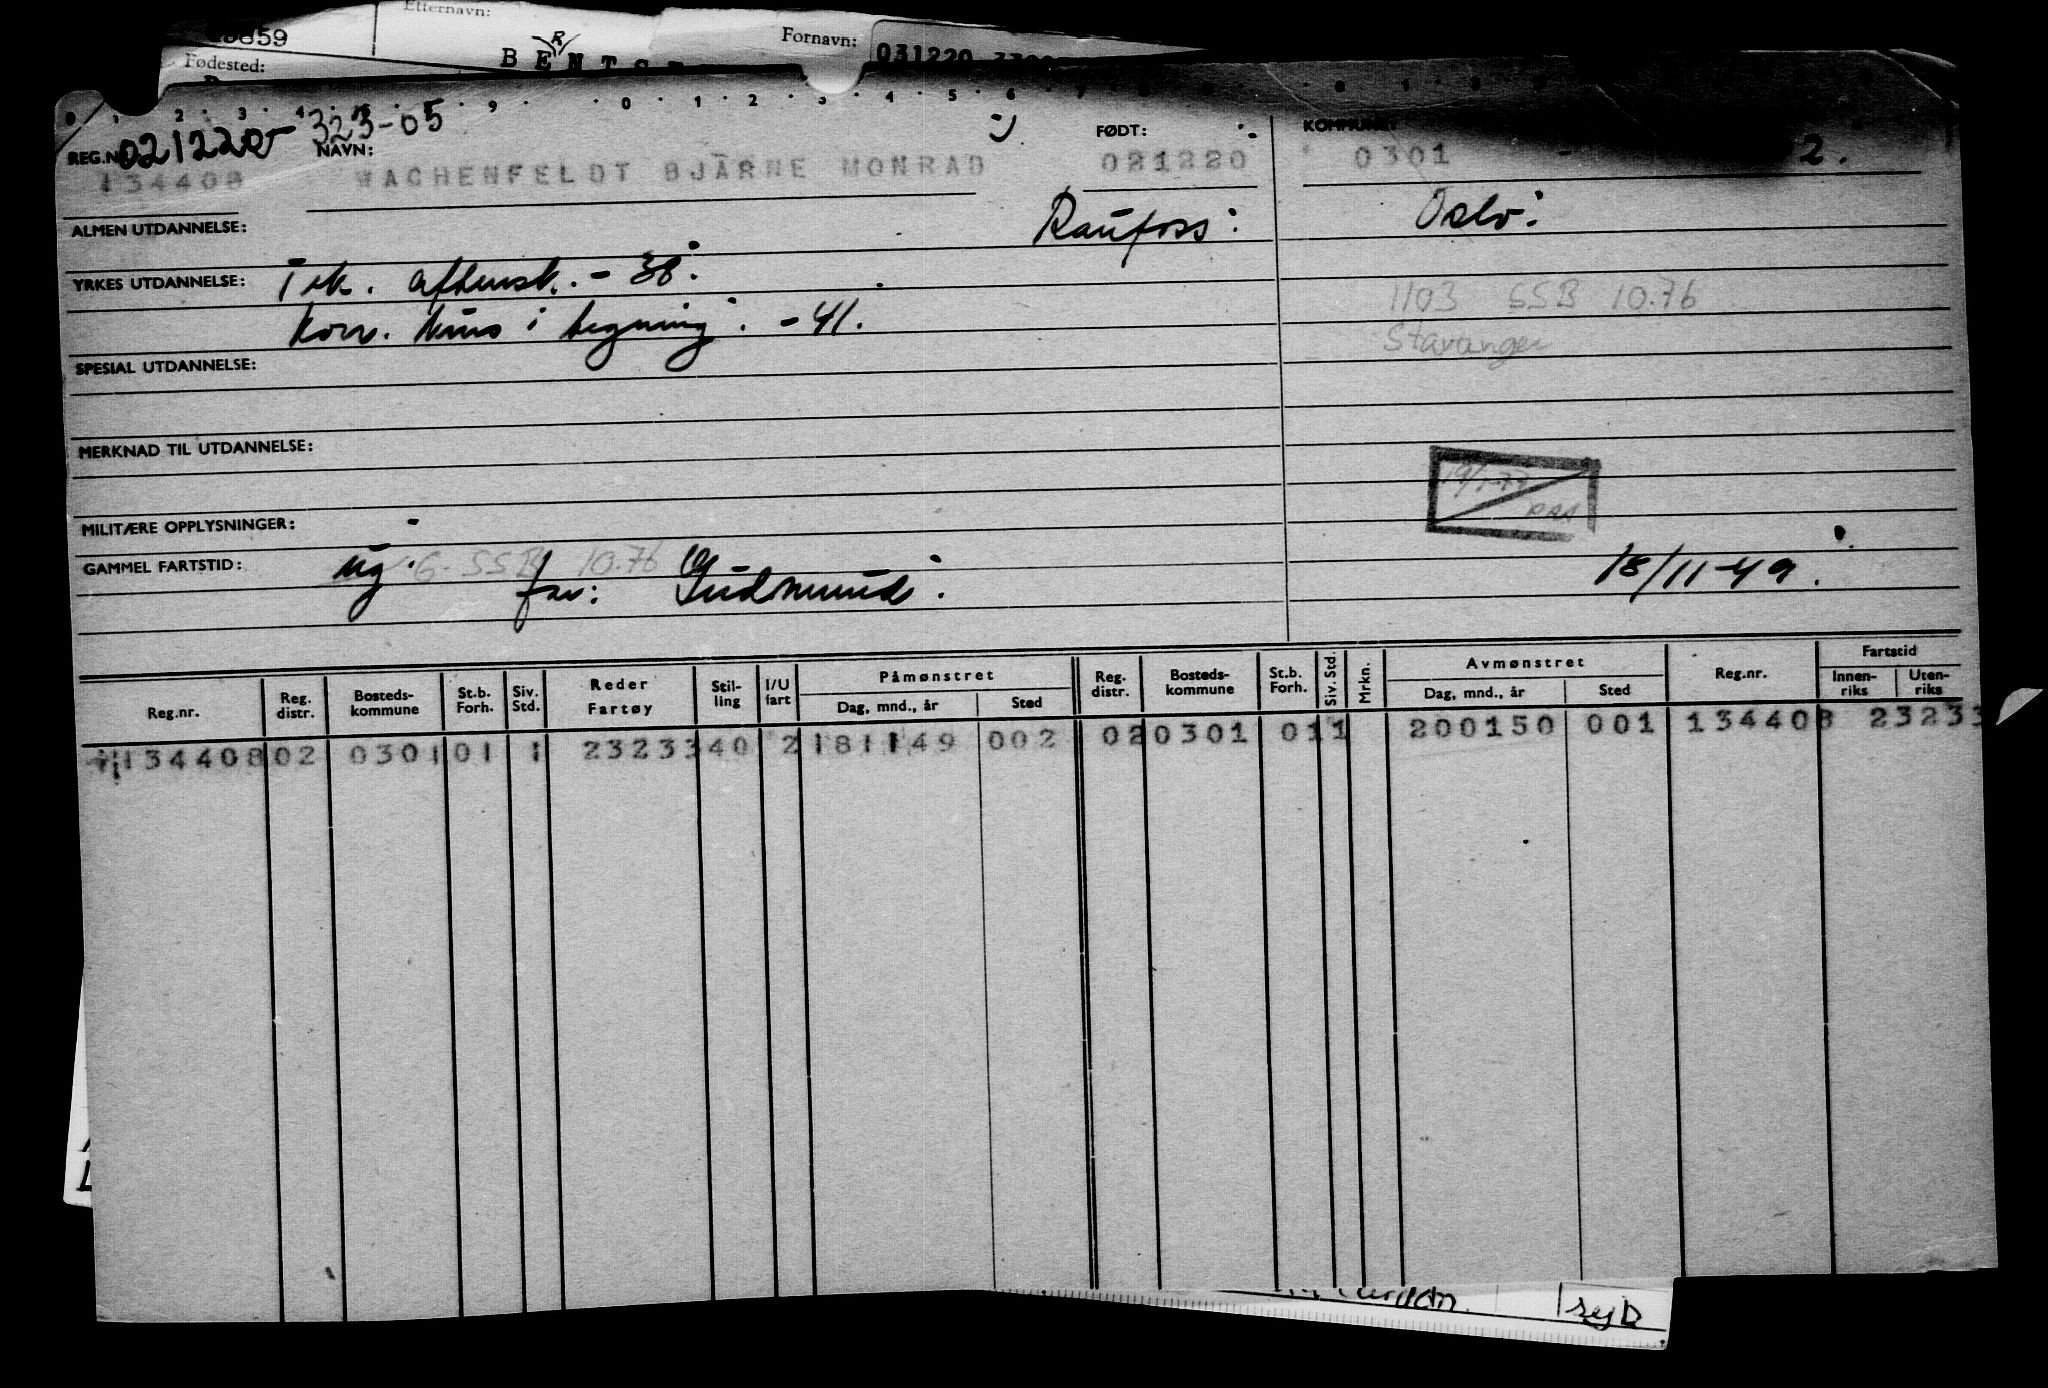 Etternavn:
Fornavn:
Fødested:
031220
REG.NR. 021220 323-05
NAVN:
FØDT:
KOMMUNE:
134408 WACHENFELDT BJARNE MONRAD 021220 0301 2.
ALMEN UTDANNELSE:
Raufoss.
Oslo.
YRKES UTDANNELSE: Tek. aftensk. - 38.
1103 SSB 10.76
Korr. kurs i tegning. - 41.
Stavanger
SPESIAL UTDANNELSE:
MERKNAD TIL UTDANNELSE:
MILITÆRE OPPLYSNINGER:
GAMMEL FARTSTID:
ug. G. SSB 10.76 far: Gudmund.
18/11-49.
Reg.nr. Reg. distr. Bosteds-kommune St.b. Forh. Siv. Std. Reder Fartøy Stil-ling I/U fart Påmønstret Dag, mnd., år Sted Reg. distr. Bosteds-kommune St.b. Forh. Siv. Std. Mrkn. Avmønstret Dag, mnd., år Sted Reg.nr. Fartstid Innen-riks Uten-riks
134408 02 0301 01 1 23233 40 2 181149 002 02 0301 01 1 200150 001 134408 23233